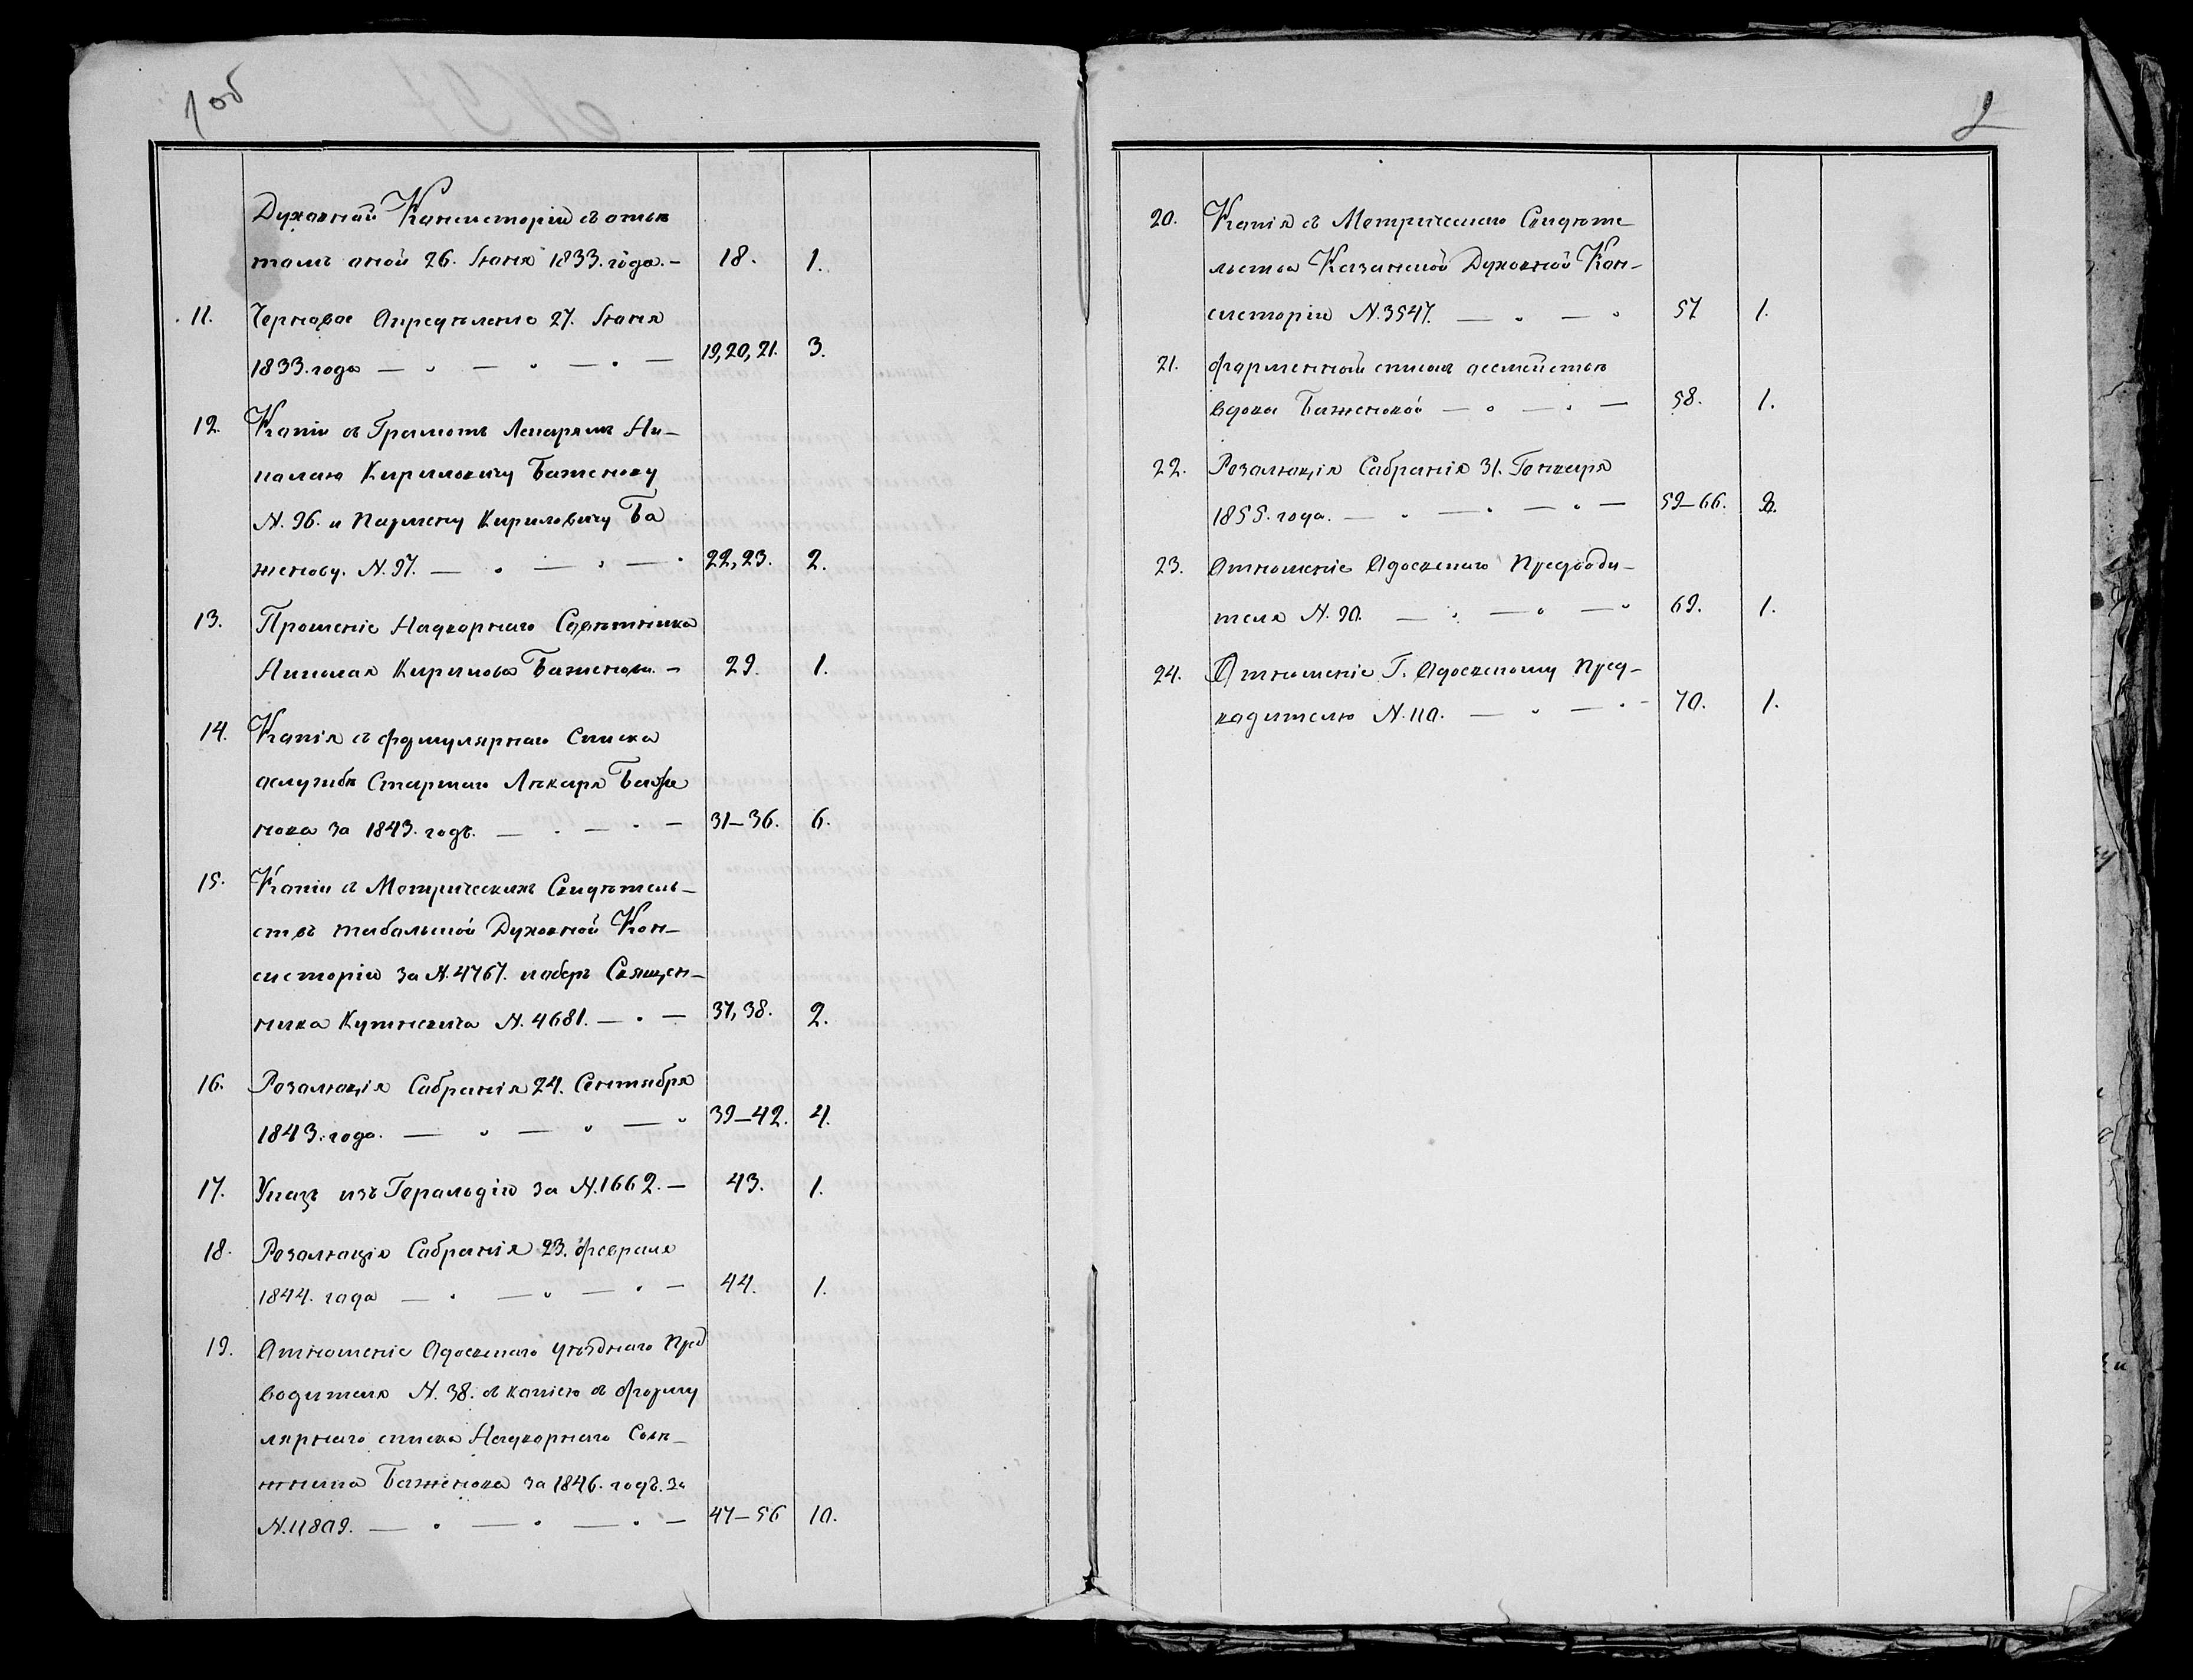 1 об
Духовной Консисторіи съ отвѣ
томъ оной 26. Іюня 1833. года. — 18. 1.
11. Черновое Опредѣленіе 27. Іюня
1833. года — „ — „ — „ — 19, 20, 21. 3.
12. Копіи съ Грамотъ Лекарямъ Ни-
колаю Кириловичу Баженову
N. 96. и Пармену Кириловичу Ба
женову. N. 97. — „ — „ — „ 22, 23. 2.
13. Прошеніе Надворнаго Совѣтника
Николая Кирилова Баженова. — 29. 1.
14. Копія съ формулярнаго Списка
ослужбѣ Старшаго Лѣкаря Баже
нова за 1843. годъ. — „ — „ — 31—36. 6.
15. Копіи съ Метрическихъ Свидѣтель-
ствъ Тобольской Духовной Кон-
систоріи за N. 4767. и Священ-
ника N. 4681. — „ — 37, 38. 2.
16. Резолюція Собранія 24. Сентября
1843. года. — „ — „ — „ 39—42. 4.
17. Указъ изъ Герольдіи за N. 1662. — 43. 1.
18. Резолюція Собранія 23. Февраля
1844. года — „ — „ — „ — 44. 1.
19. Отношеніе Одоевскаго уѣзднаго Пред
водителя N. 38. съ копіею съ формул
лярнаго списка Надворнаго Совѣ-
тника Баженова за 1846. годъ. за
N. 11809. — „ — „ — „ — 47—56 10.
2
20. Копія съ Метрическаго Свидѣте
льства Казанской Духовной Кон-
систоріи N. 3547. — „ — „ 57 1.
21. Форменной списокъ осемействѣ
вдовы Баженовой — „ — „ — 58. 1.
22. Резолюція Собранія 31. Генваря
1855. года. — „ — „ — „ — 59—66. 8.
23. Отношеніе Одоевскаго Предводи-
теля N. 90. — „ — „ — „ 69. 1.
24. Отношеніе Г. Одоевскому Пред-
водителю N. 110. — „ — „ — 70. 1.